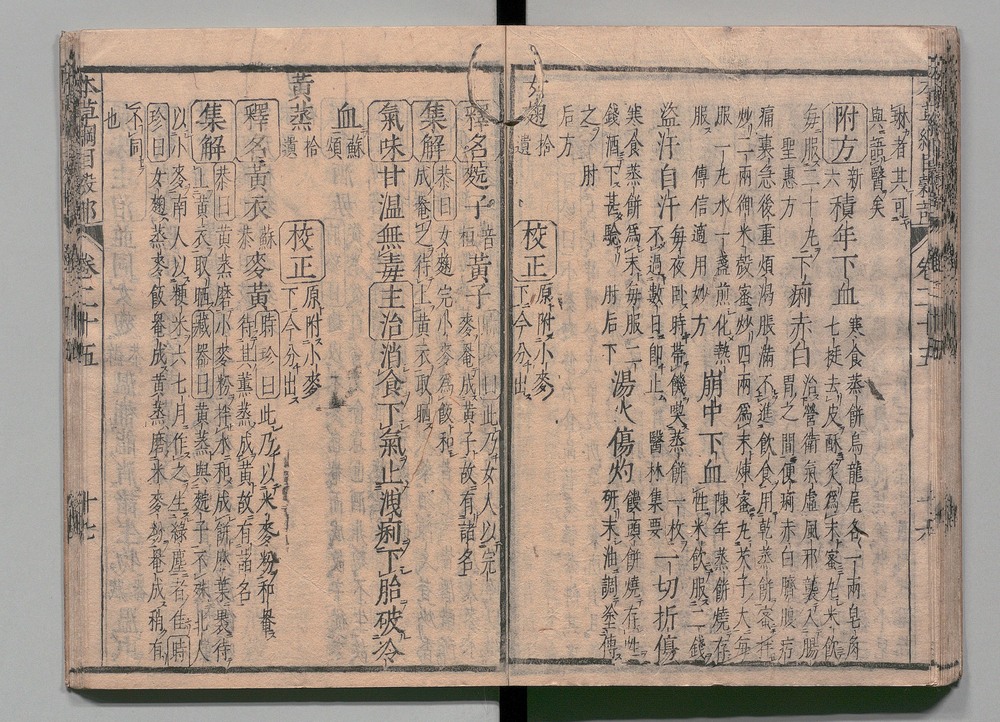 與語醫矣
附方 新六 積年下血 寒食蒸餅烏龍尾各一兩皂角
七挺去皮酥炙爲末蜜丸米飲
每服二十丸 聖惠方 下痢赤白 治營衛氣虛風邪襲入腸
胃之間便痢赤白臍腹㽲
痛裏急後重煩渴脹滿不進飲食用乾蒸餅蜜拌
炒二兩御米殼蜜炒四兩爲末煉蜜丸芡子大每
服一丸水一盞煎化熱
服 傳信適用妙方 崩中下血 陳年蒸餅燒存
性米飲服二錢
盜汗自汗 每夜臥時帶饑喫蒸餅一枚
不過數日即止 醫林集要 一切折傷
寒食蒸餅爲末每服二
錢酒下甚驗 肘后下 湯火傷灼 饅頭餅燒存性
研末油調塗傅
之 肘
后方
麹 拾遺 校正 原附小麥
下今分出
釋名 䴷子 黃子 此乃女人以完
麥罨成黃子故有諸名
集解 恭曰女麴完小麥爲飯和
成罨之待上黃衣取晒
氣味 甘溫無毒 主治 消食下氣止洩痢下胎破冷
血 蘇頌
黃蒸 拾遺 校正 原附小麥
下今分出
釋名 黃衣 蘇恭 麥黃 時珍曰此乃以米麥粉和罨
待其薰蒸成黃故有諸名
集解 恭曰黃蒸磨小麥粉拌水和成餅麻葉裹待
上黃衣取晒藏器曰黃蒸與䴷子不殊北人
以小麥南人以粳米六七月作之生綠塵者佳時
珍曰女麴蒸麥飯罨成黃蒸磨米麥粉罨成稍有
不同
也
本草綱目穀部 卷二十五 十七